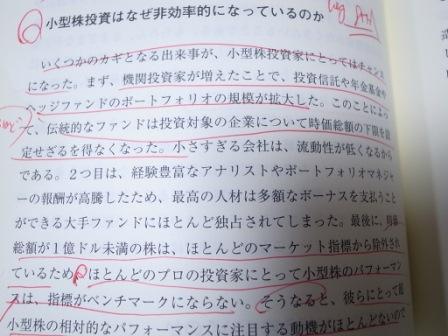 小型株投資はなぜ非効率的になっているのか
いくつかのカギとなる出来事が、小型株投資家にとってはチャンス
になった。まず、機関投資家が増えたことで、投資信託や年金基金や
ヘッジファンドのポートフォリオの規模が拡大した。このことによっ
て、伝統的なファンドは投資対象の企業について時価総額の下限を設
定せざるを得なくなった。小さすぎる会社は、流動性が低くなるから
である。2つ目は、経験豊富なアナリストやポートフォリオマネジャ
ーの報酬が高騰したため、最高の人材は多額なボーナスを支払うこと
ができる大手ファンドにほとんど独占されてしまった。最後に、時価
総額が1億ドル未満の株は、ほとんどのマーケット指標から除外され
ているため、ほとんどのプロの投資家にとって小型株のパフォーマン
スは、指標がベンチマークにならない。そうなると、彼らにとって超
小型株の相対的なパフォーマンスに注目する動機がほとんどないので